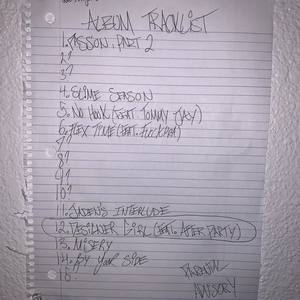 ALBUM TRACKLIST
1. PASSION, PART 2
2?
3?
4. SLIME SEASON
5. NO HOOK (FEAT. TOMMY JAXY)
6. FLEX TIME (FEAT.
7?
8?
9?
10?
11. JADEN'S INTERLUDE
12. DESIGNER GIRL (FEAT. AFTER PARTY)
13. MISERY
14. BY YOUR SIDE
15.
PARENTAL
ADVISORY